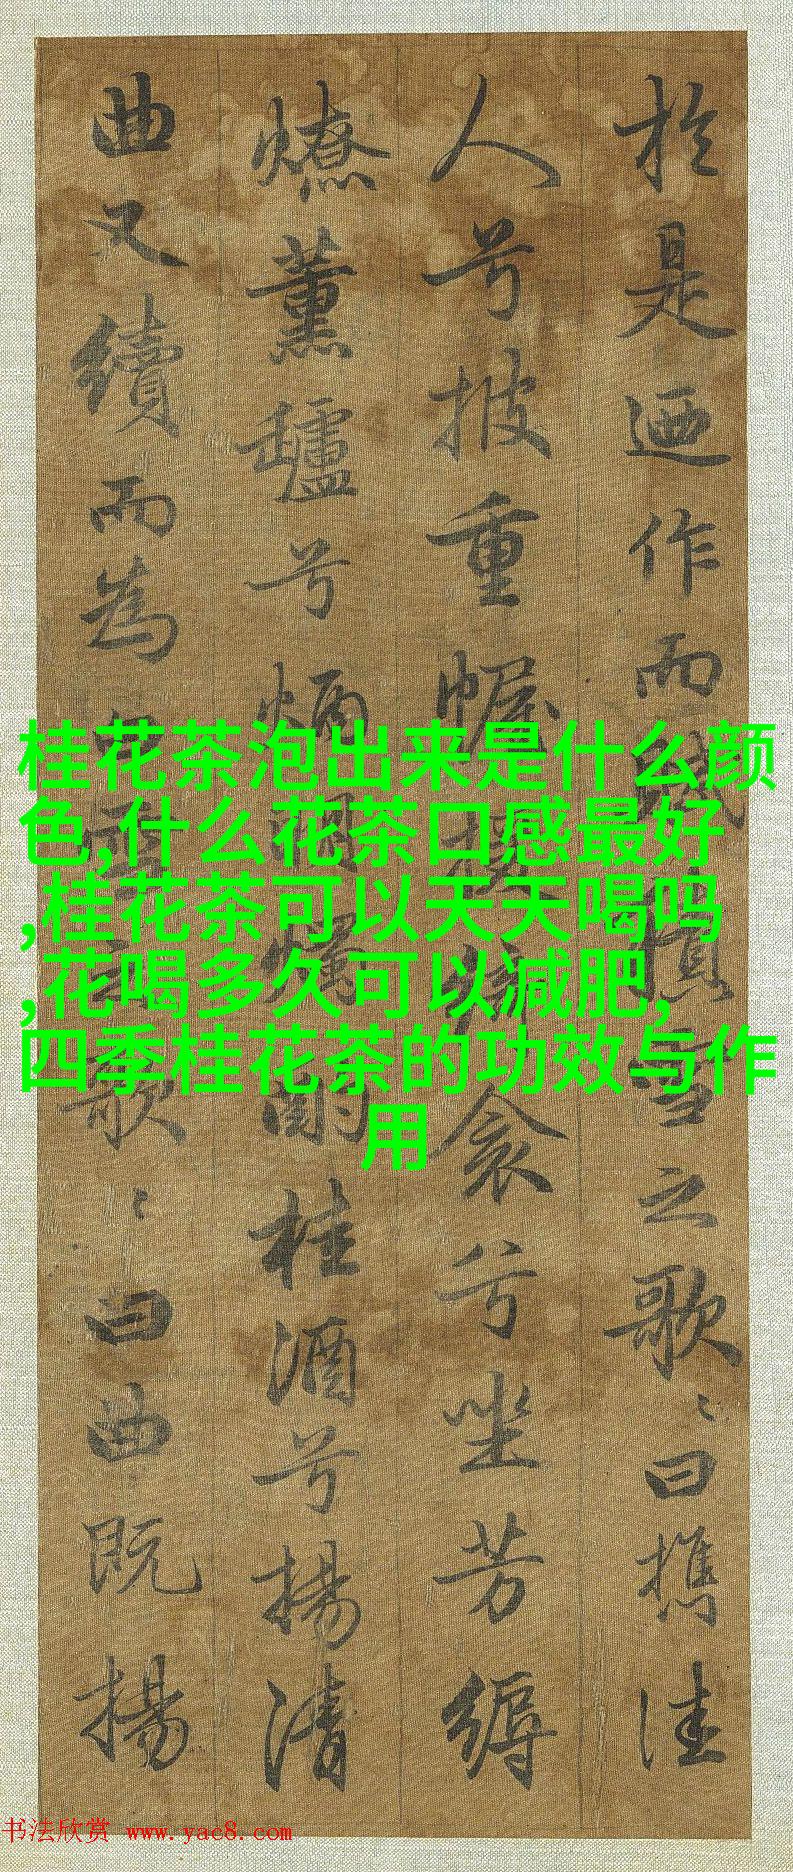 於是迺作而賦積雪之歌〻曰攜佳
人兮披重幄援綺衾兮坐芳縟
燎薰鑪兮炳明燭酌桂酒兮揚清
曲又續而為白雪之歌〻曰曲既揚
桂花茶泡出来是什么颜
色,什么花茶口感最好
,桂花茶可以天天喝吗
,花喝多久可以减肥,
四季桂花茶的功效与作
用
书法欣赏 www.yac8.com